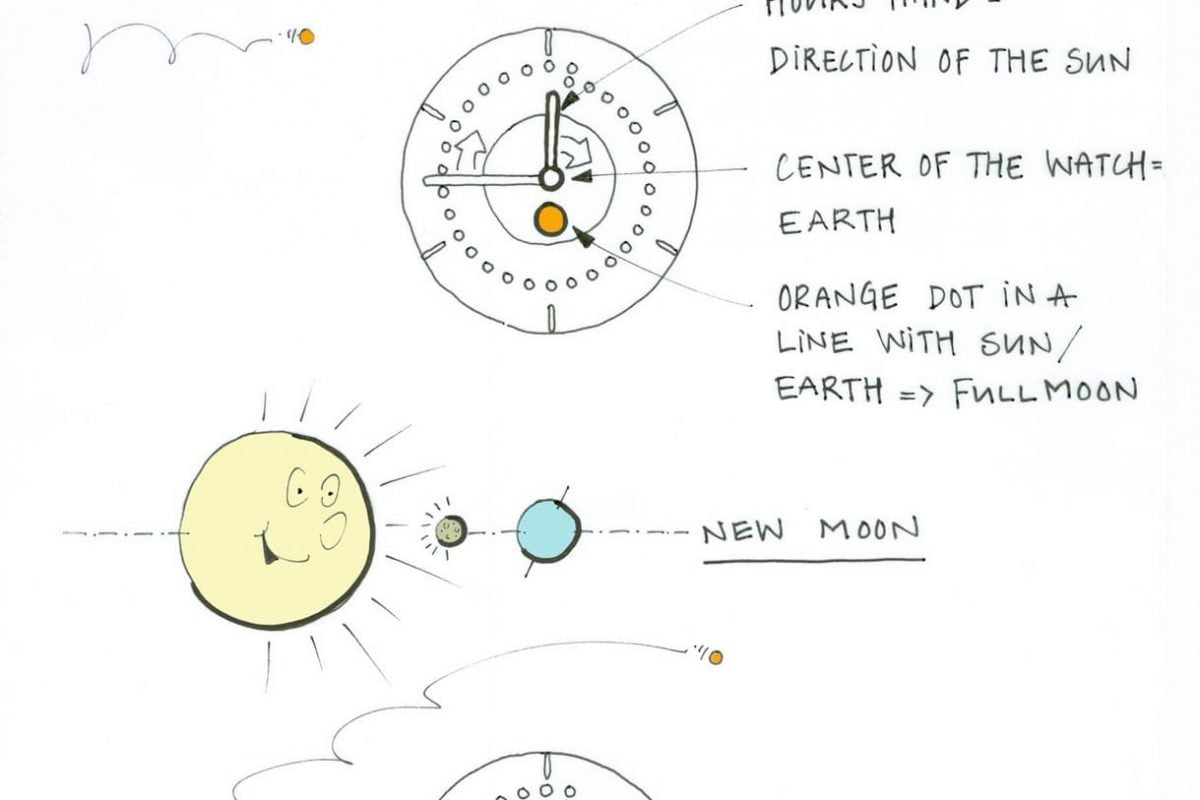 DIRECTION OF THE SUN
CENTER OF THE WATCH=
EARTH
ORANGE DOT IN A
LINE WITH SUN/
EARTH => FULLMOON
NEW MOON